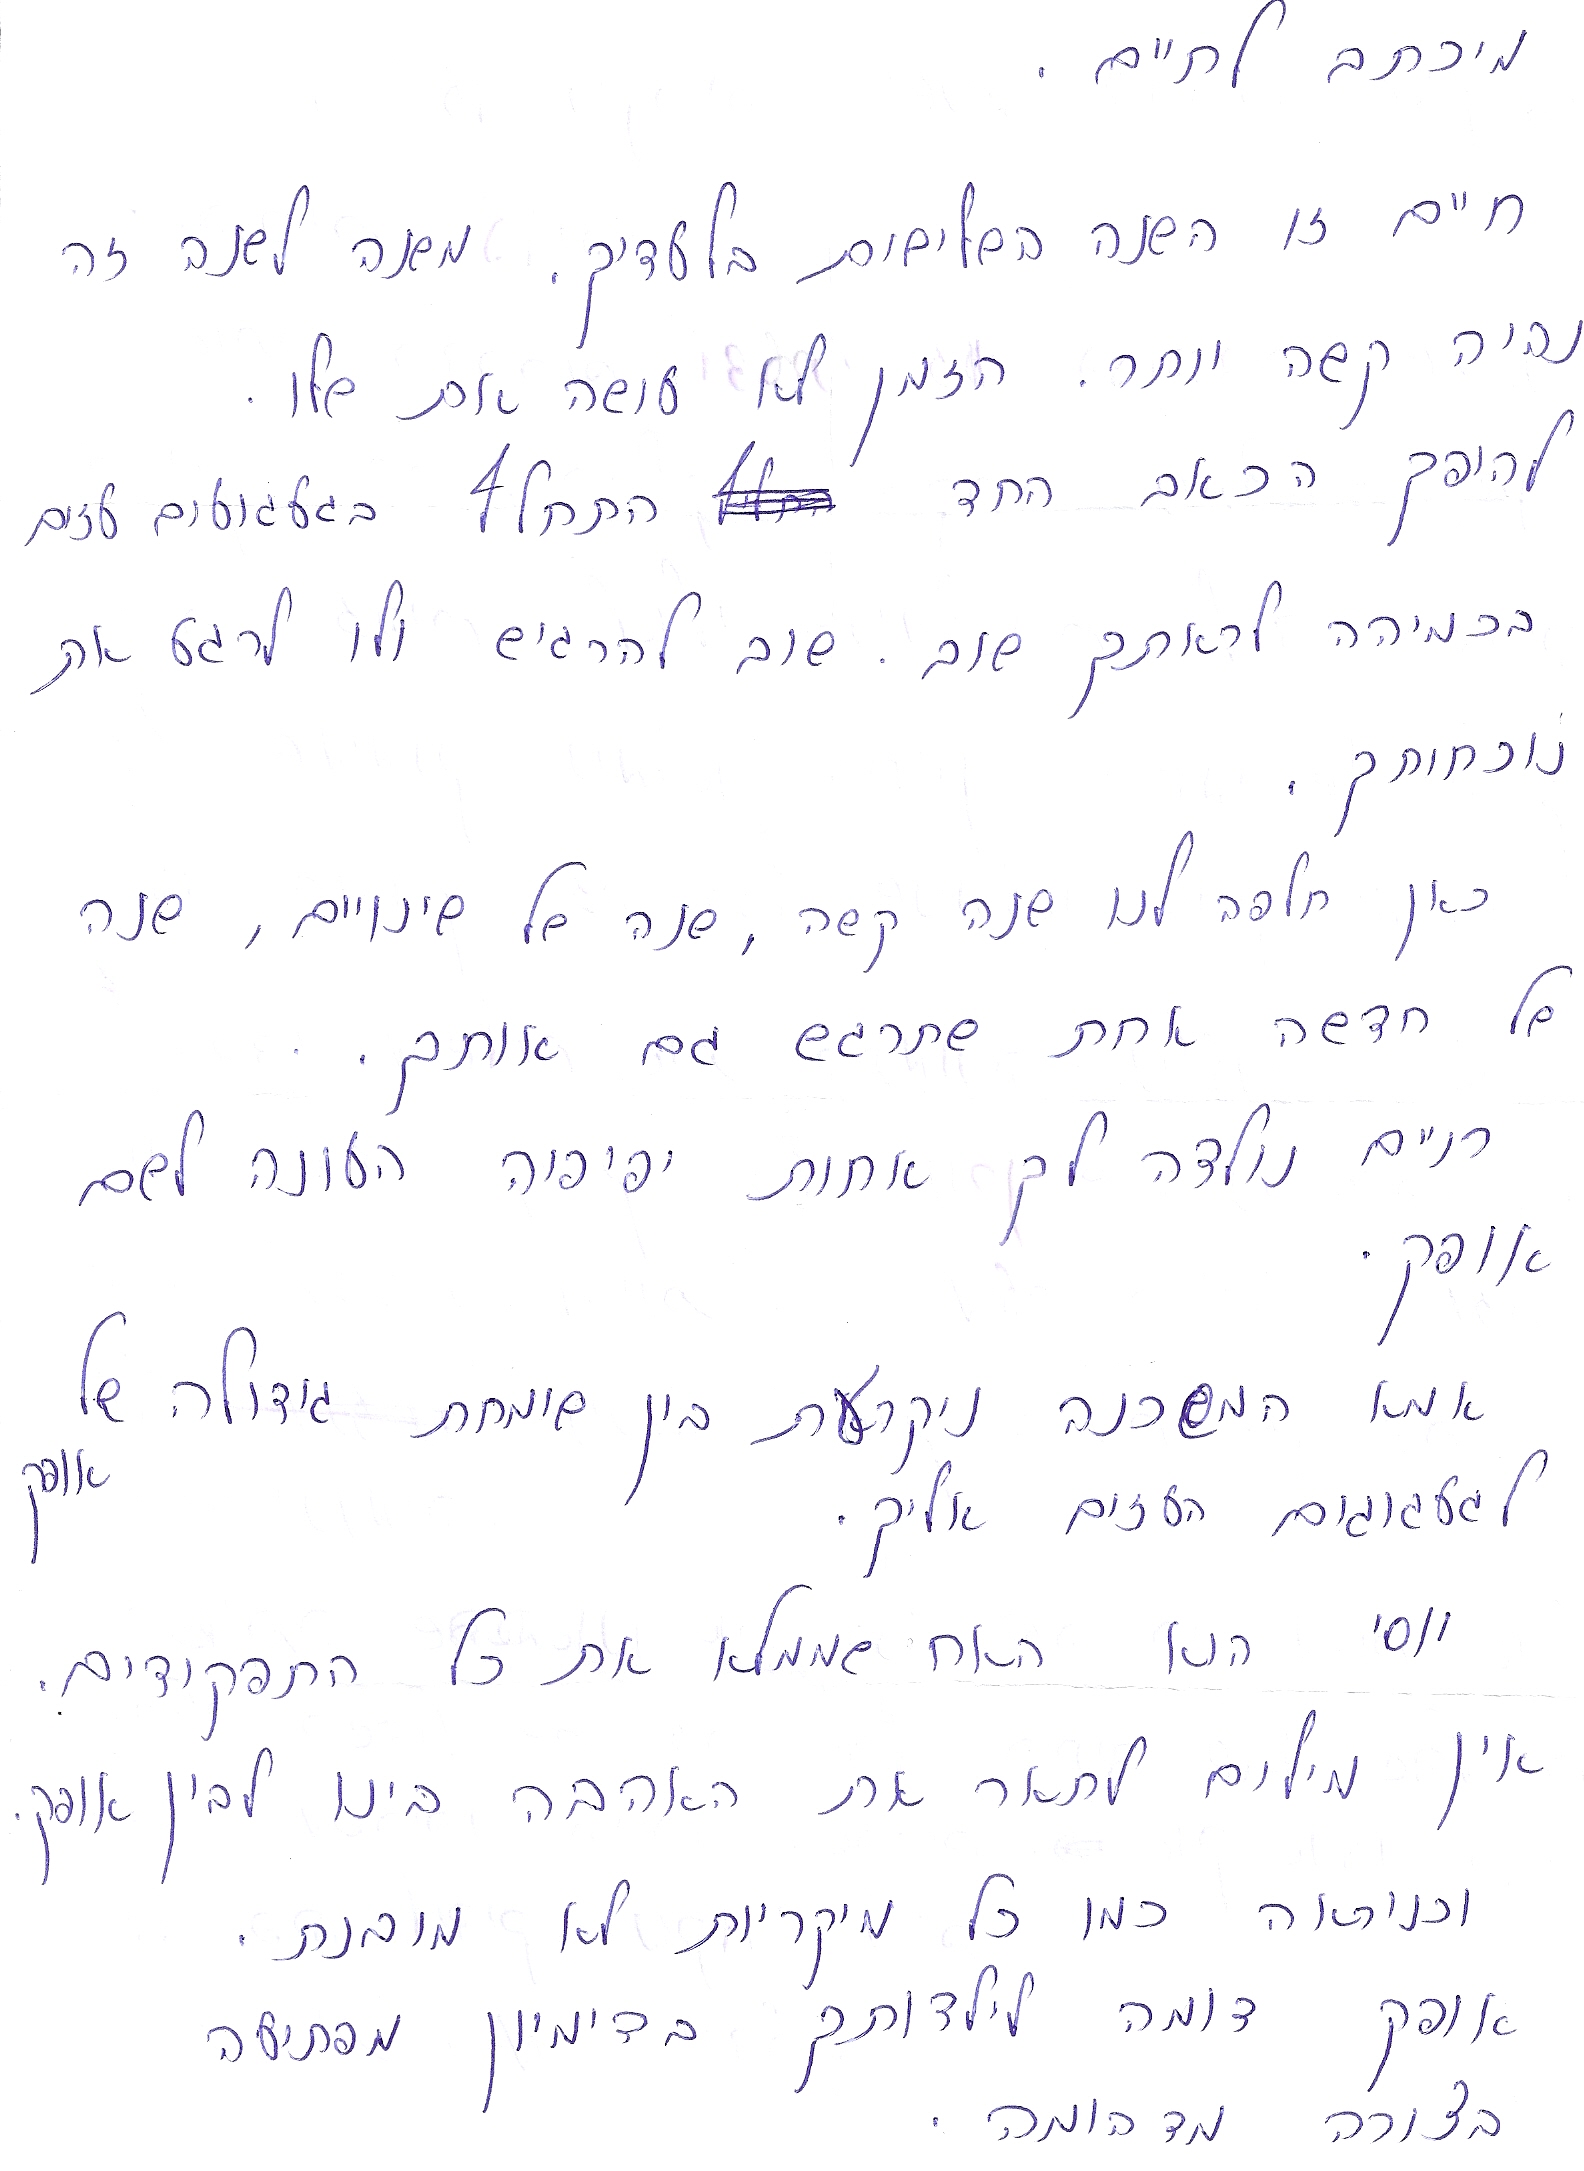 מיכתב לחיים.
חיים זו השנה השלישית בלעדיך. משנה לשנה זה
נהיה קשה יותר. הזמן לא עושה את שלו.
להיפך הכאב החד התחלף בגעגועים עזים
בכמיהה לראותך שוב. שוב להרגיש ולו לרגע את
נוכחותך.
כאן חלפה לנו שנה קשה, שנה של שינויים, שנה
של חדשה אחת שתרגש גם אותך.
חיים נולדה לך אחות יפיפיה העונה לשם
אופק.
אמא המשכנה ניקרעת בין שימחת גידולה של
אופק
לגעגוגים העזים אליך.
יוסי הוא האח שממלא את כל התפקודים.
אין מילים לתאר את האהבה בינו לבין אופק.
וכניראה כמו כל מיקריות לא מובנת.
אופק דומה לילדותך בדימיון מפתיעה
בצורה מדהומה.